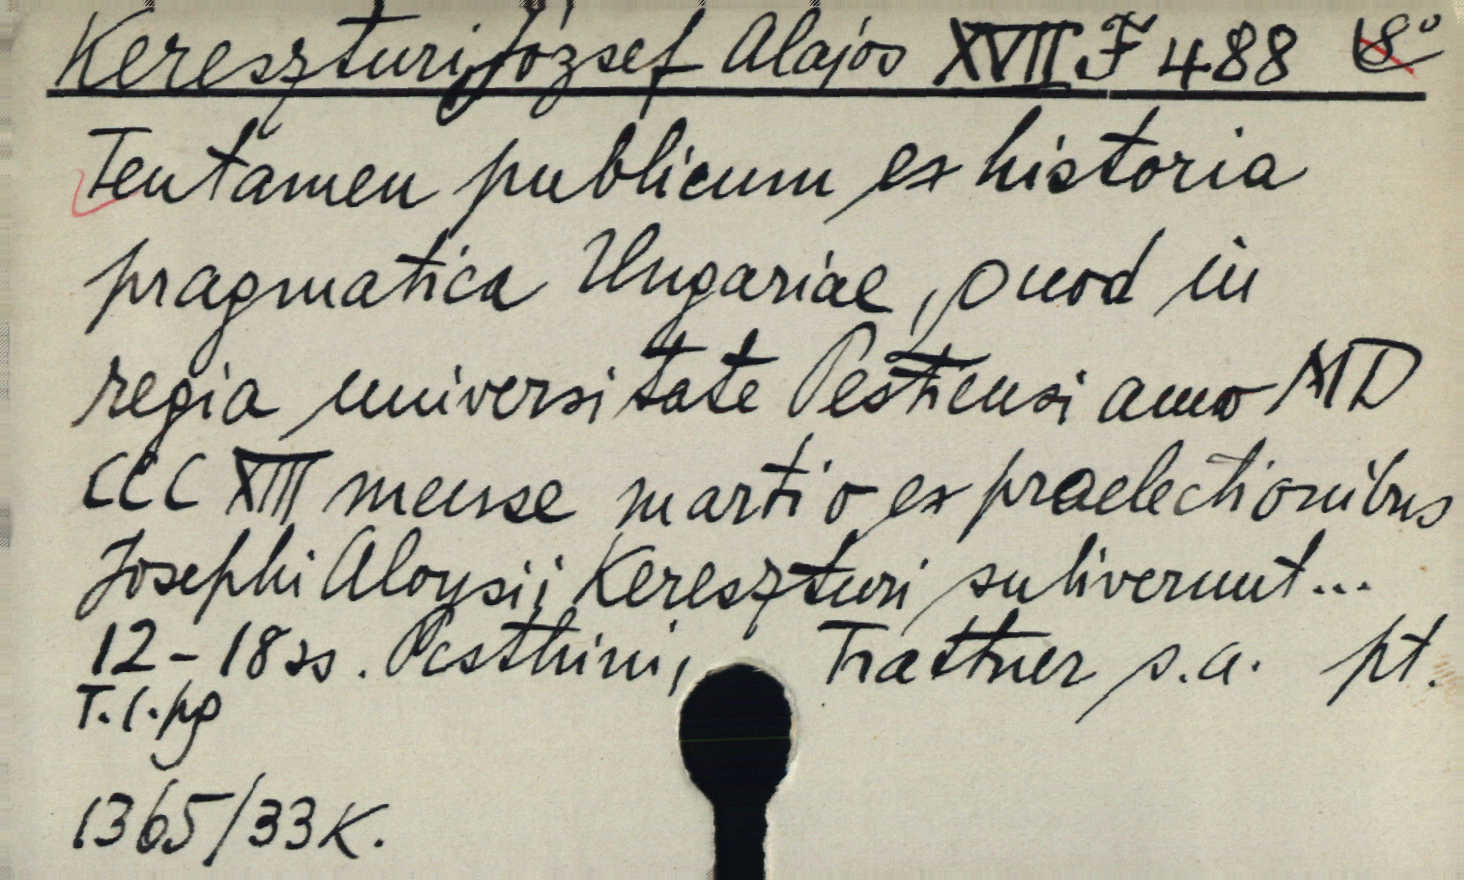 Kereszturi József Alajos XVII F 488 8°
Tentamen publicum ex historia
pragmatica Ungariae, quod in
regia universitate Pestiensi anno MD
CCC XIII mense martio ex praelectionibus
Josephi Aloysii Kereszturi subiverunt...
12-18 ss. Pesthini, Trattner s.a. pt.
T.l.pg
1365/33 K.